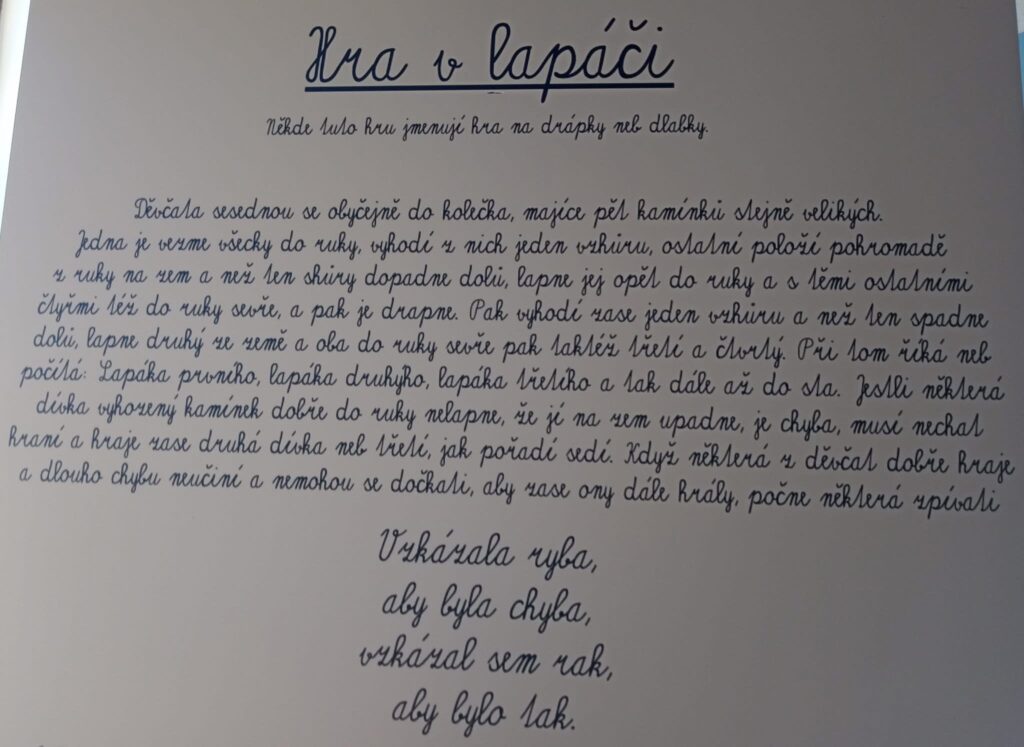 Hra v lapáči
Někde tuto hru jmenují hra na drápky neb dlabky.
Děvčata sesednou se obyčejně do kolečka, majíce pět kamínků stejně velikých.
Jedna je vezme všecky do ruky, vyhodí z nich jeden vzhůru, ostatní položí pohromadě
z ruky na zem a než ten shůry dopadne dolů, lapne jej opět do ruky a s těmi ostatními
čtyřmi též do ruky sevře, a pak je drapne. Pak vyhodí zase jeden vzhůru a než ten spadne
dolů, lapne druhý ze země a oba do ruky sevře pak taktéž třetí a čtvrtý. Při tom říká neb
počítá: Lapáka prvního, lapáka druhýho, lapáka třetího a tak dále až do sta. Jestli některá
dívka vyhozený kamínek dobře do ruky nelapne, že jí na zem upadne, je chyba, musí nechat
hraní a hraje zase druhá dívka neb třetí, jak pořadí sedí. Když některá z děvčat dobře hraje
a dlouho chybu neučiní a nemohou se dočkati, aby zase ony dále hrály, počne některá zpívati
Vzkázala ryba,
aby byla chyba,
vzkázal sem rak,
aby bylo tak.